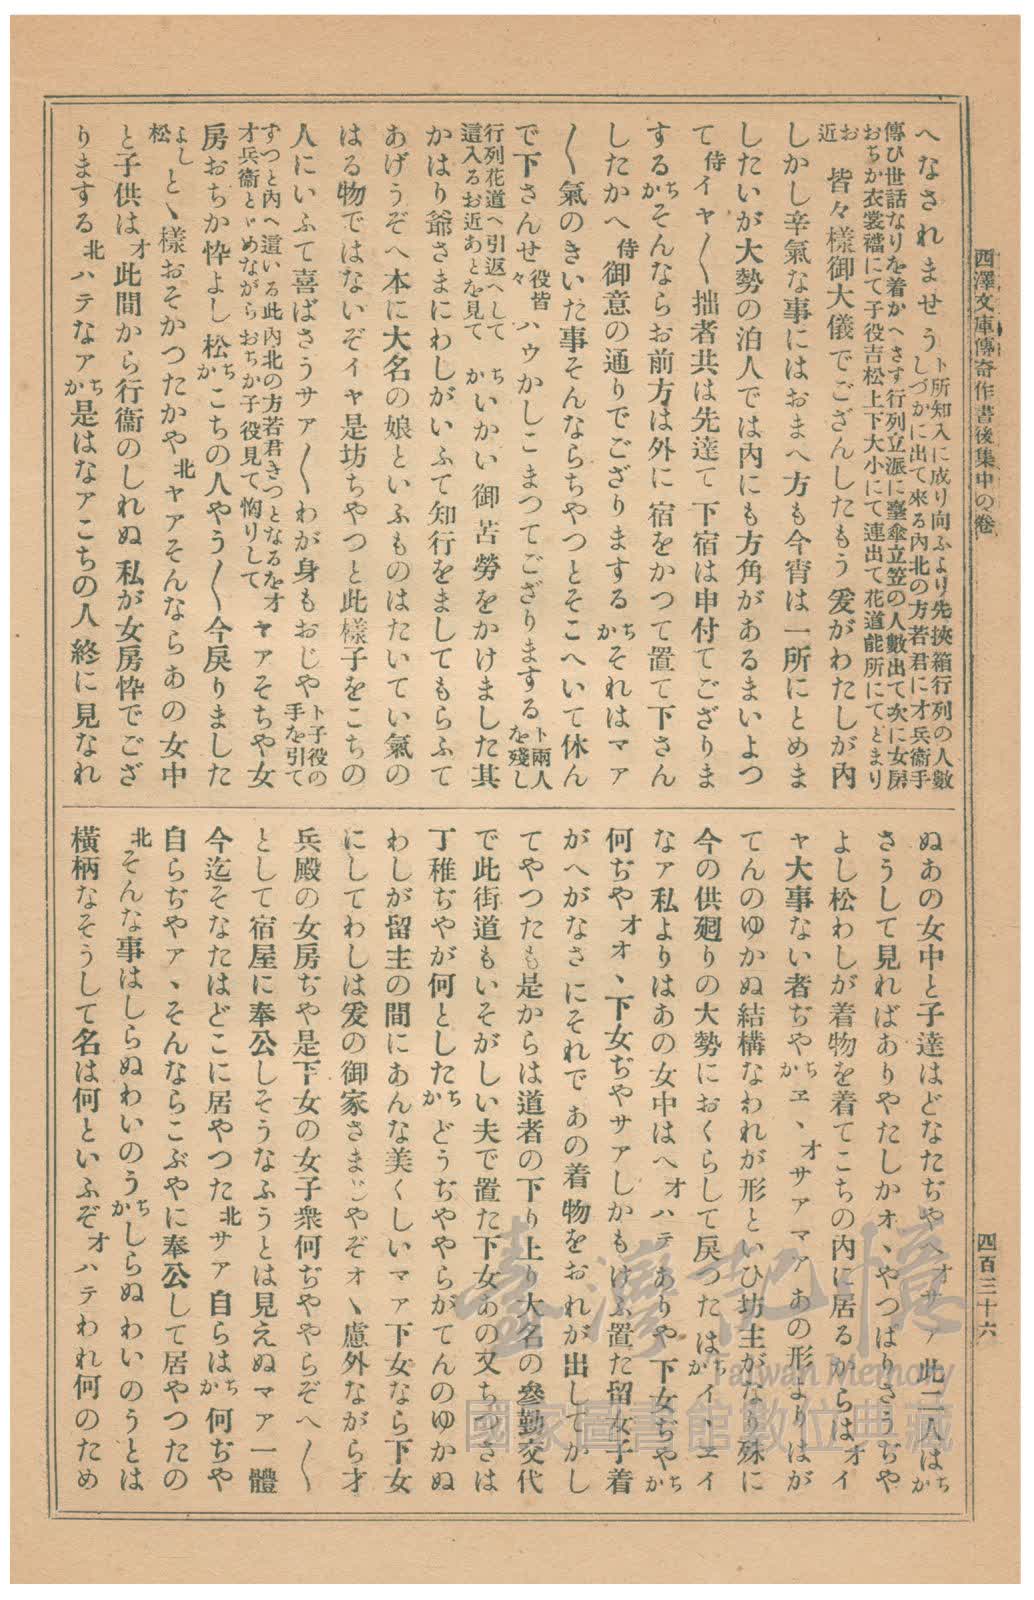 西澤文庫傳奇作書後集中の卷
四百三十六
へなされませうト所知入に成り向ふより先挾箱行列の人數
しづかに出て來る內北の方若君に才兵衞手
傳ひ世話なりを着かへさす行列立派に臺傘立笠の人數出て次に女房
おちか衣裳襠にて子役吉松上下大小にて連出て花道能所にてとまり
お近 皆々樣御大儀でござんしたもう爰がわたしが內
しかし辛氣な事にはおまへ方も今宵は一所にとめま
したいが大勢の泊人では內にも方角があるまいよつ
て侍イヤ〱拙者共は先達て下宿は申付てござりま
するちかそんならお前方は外に宿をかつて置て下さん
したかへ侍御意の通りでござりまするちかそれはマア
〱氣のきいた事そんならちやつとそこへいて休ん
で下さんせ役皆々ハウかしこまつてござりまするト兩人を殘し
行列花道へ引返へして這入るお近あとを見てちかいかい御苦勞をかけました其
かはり爺さまにわしがいふて知行をましてもらふて
あげうぞへ本に大名の娘といふものはたいてい氣の
はる物ではないぞイヤ是坊ちやつと此樣子をこちの
人にいふて喜ばさうサア〱わが身もおじやト子役の手を引て
ずつと內へ這いる此內北の方若君きつとなるをオ
才兵衞とゞめながらおちか子役見て恟りしてヤアそちや女
房おちか忰よし松ちかこちの人やう〱今戾りました
よし松とゝ樣おそかつたかや北ヤアそんならあの女中
と子供はオ此間から行衞のしれぬ私が女房忰でござ
りまする北ハテなアちか是はなアこちの人終に見なれ
ぬあの女中と子達はどなたぢやへオサア此二人はちか
さうして見ればありやたしかオヽやつぱりさうぢや
よし松わしが着物を着てこちの內に居るからはオイ
ヤ大事ない者ぢやちかヱヽオサアマアあの形よりはが
てんのゆかぬ結構なわれが形といひ坊主がなり殊に
今の供廻りの大勢におくらして戾つたはちかイヽヱイ
なア私よりはあの女中はへオハテありや下女ぢやちか
何ぢやオオヽ下女ぢやサアしかもけふ置た留女子着
がへがなさにそれであの着物をおれが出してかし
てやつたも是からは道者の下り上り大名の參勤交代
で此街道もいそがしい夫で置た下女あの又ちつさは
丁稚ぢやが何としたちかどうぢややらがてんのゆかぬ
わしが留主の間にあんな美くしいマア下女なら下女
にしてわしは爰の御家さまぢやぞオヽ慮外ながら才
兵殿の女房ぢや是下女の女子衆何ぢややらぞへ〱
として宿屋に奉公しそうなふうとは見えぬマア一體
今迄そなたはどこに居やつた北サア自らはちか何ぢや
自らぢやアヽそんならこぶやに奉公して居やつたの
北そんな事はしらぬわいのうちかしらぬわいのうとは
橫柄なそうして名は何といふぞオハテわれ何のため
臺灣記憶
Taiwan Memory
國家圖書館數位典藏